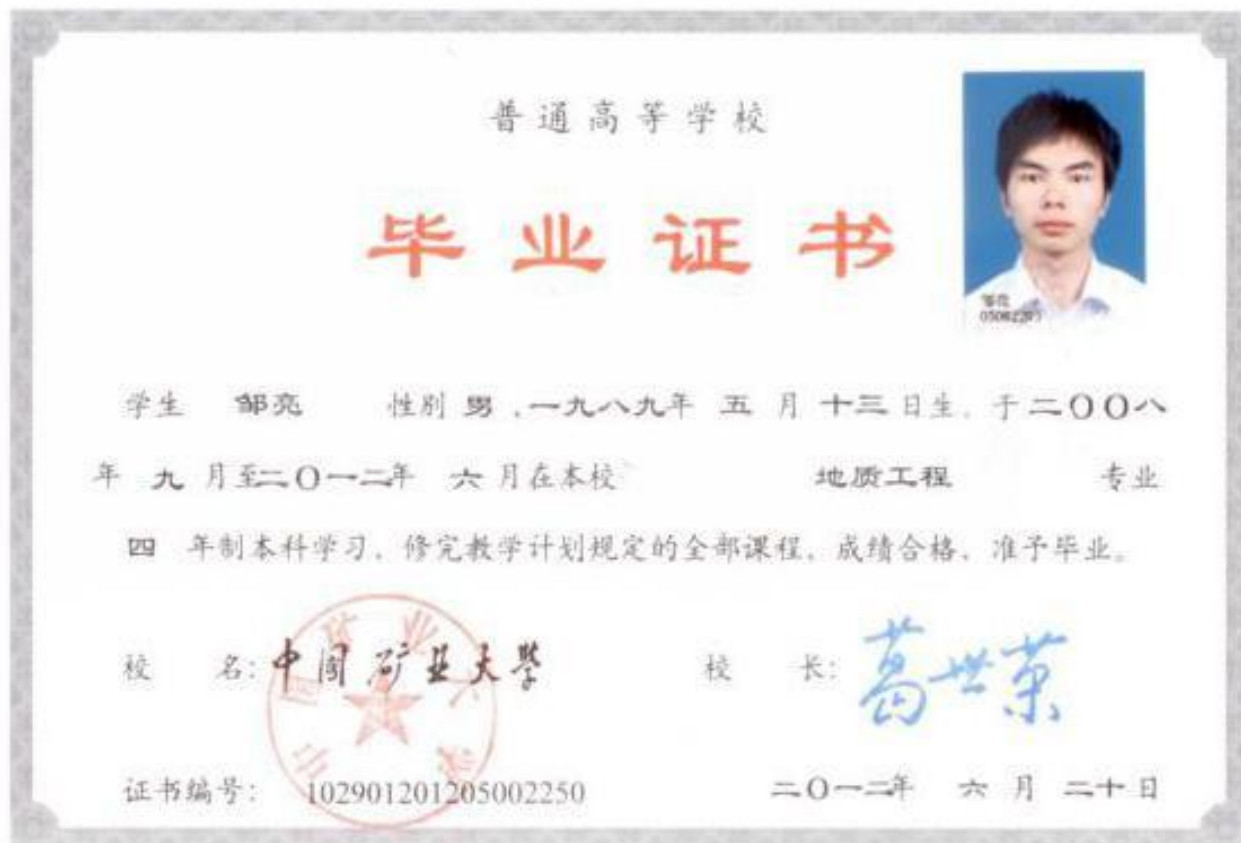 普通高等学校
毕业证书
邹亮
学生 邹亮 性别 男，一九八九年 五 月 十三 日生，于 二〇〇八
年 九 月至二〇一二年 六 月在本校 地质工程 专业
四 年制本科学习，修完教学计划规定的全部课程，成绩合格，准予毕业。
校 名：中国矿业大学 校 长：葛世荣
证书编号： 102901201205002250 二〇一二年 六 月 二十 日